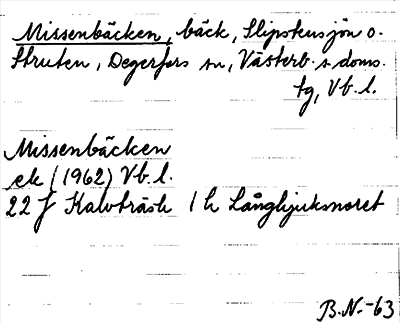 Missenbäcken, bäck, Slipstensjön o.
Struten, Degerfors sn, Västerb. s. doms.
tg, Vb. l.
Missenbäcken
ek (1962) Vb. l.
22 J Kalvträsk 1 h Långhjuksnoret
B.N.-63